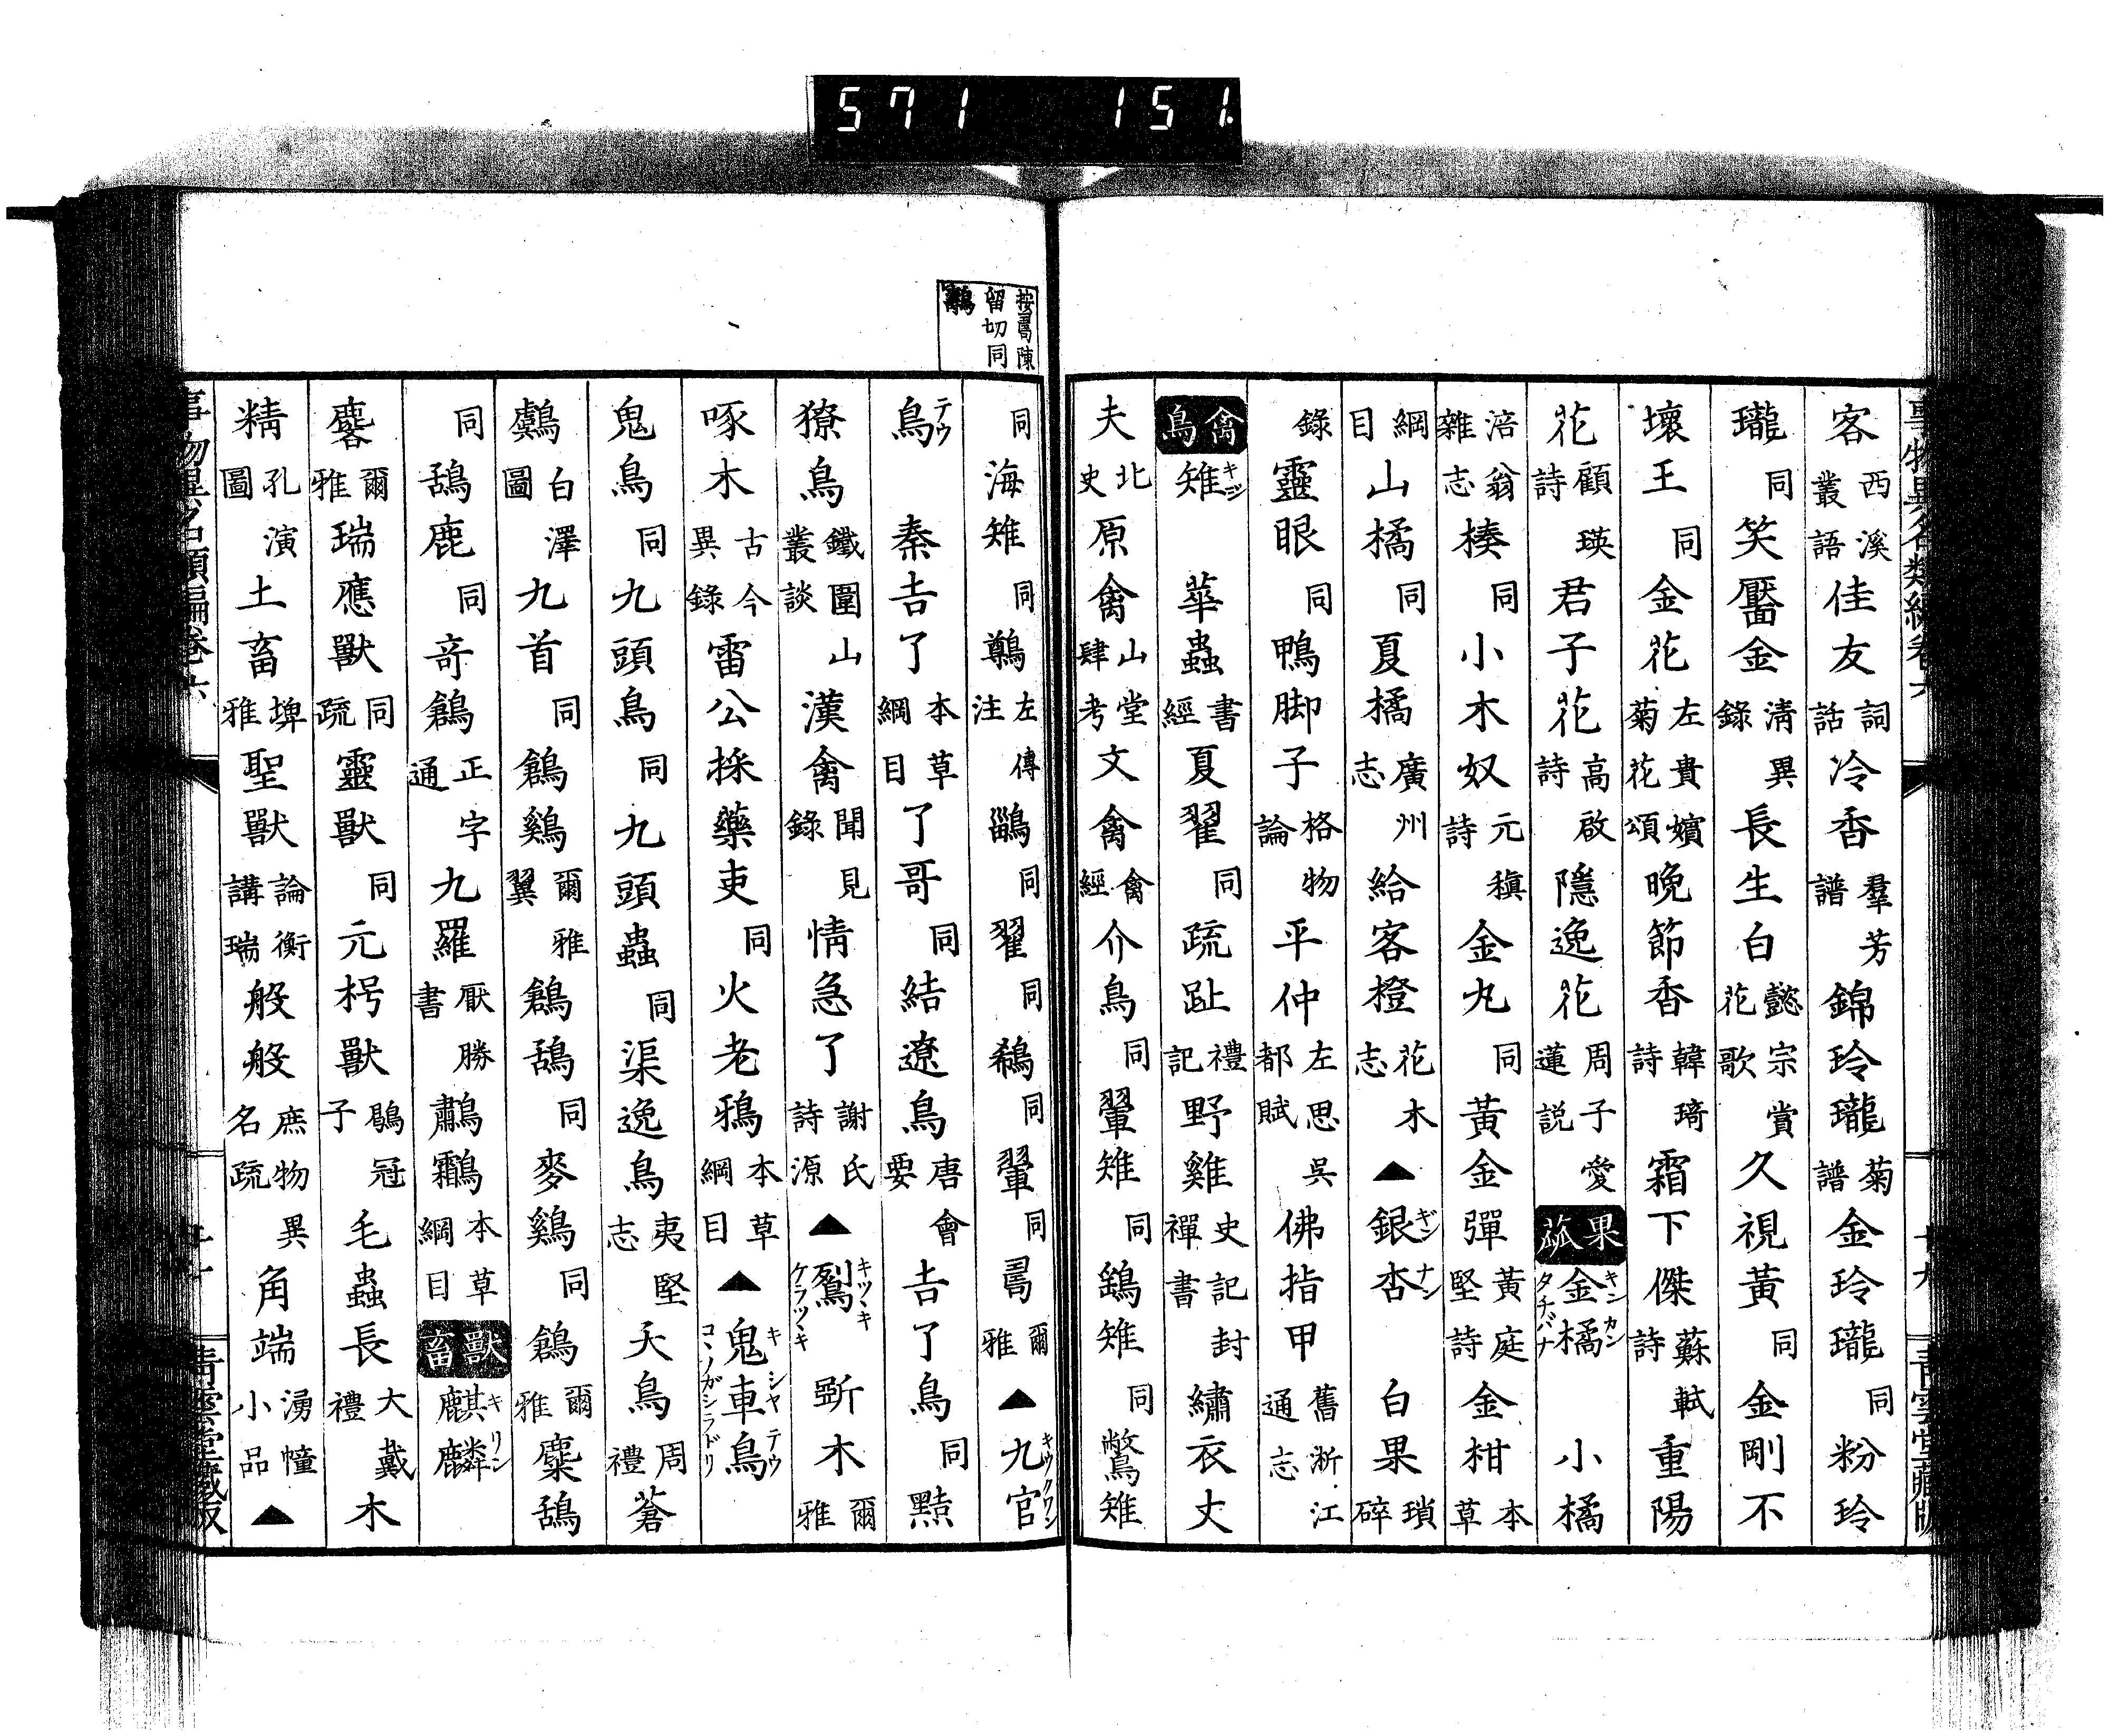 事物異名類編卷六 青雲堂藏版
客西溪叢語佳友詞話冷香羣芳譜錦玲瓏菊譜金玲瓏同粉玲
瓏同笑靨金清異錄長生白懿宗賞花歌久視黃同金剛不
壞王同金花左貴嬪菊花頌晚節香韓琦詩霜下傑蘇軾詩重陽
花顧瑛詩君子花高啟詩隱逸花周子愛蓮説果蓏金橘キンカンタチバナ小橘
涪翁雜志楱同小木奴元稹詩金丸同黃金彈黃庭堅詩金柑本草
綱目山橘同夏橘廣州志給客橙花木志▲銀杏ギンナン白果瑣碎
錄靈眼同鴨脚子格物論平仲左思吳都賦佛指甲舊淅江通志
禽鳥雉キジ華蟲書經夏翟同疏趾禮記野雞史記封禪書繡衣丈
夫北史原禽山堂肆考文禽禽經介鳥同翬雉同鷂雉同鷩雉
陳留切同
同海雉同鷷左傳注鶅同翟同鵗同翬同爾雅▲九官キウクワン
鳥テウ秦吉了本草綱目了哥同結遼鳥唐會要吉了鳥同
獠鳥鐵圍山叢談漢禽聞見錄情急了謝氏詩源▲鴷キツヽキケラツヽキ斲木爾雅
啄木古今異錄雷公採藥吏同火老鴉本草綱目▲鬼車鳥キシヤテウコヽノガシラドリ
鬼鳥同九頭鳥同九頭蟲同渠逸鳥夷堅志天鳥周禮蒼
鸆白澤圖九首同鶬鷄爾雅翼鶬鴰同麥鷄同鶬爾雅麋鴰
同鴰鹿同奇鶬正字通九羅厭勝書鷫鸘本草綱目獸畜麒麟キリン
麐爾雅瑞應獸同疏靈獸同元枵獸鶡冠子毛蟲長大戴禮木
精孔演圖土畜埤雅聖獸論衡講瑞般般庶物異名疏角端湧幢小品▲
事物異名類編卷六 青雲堂藏版